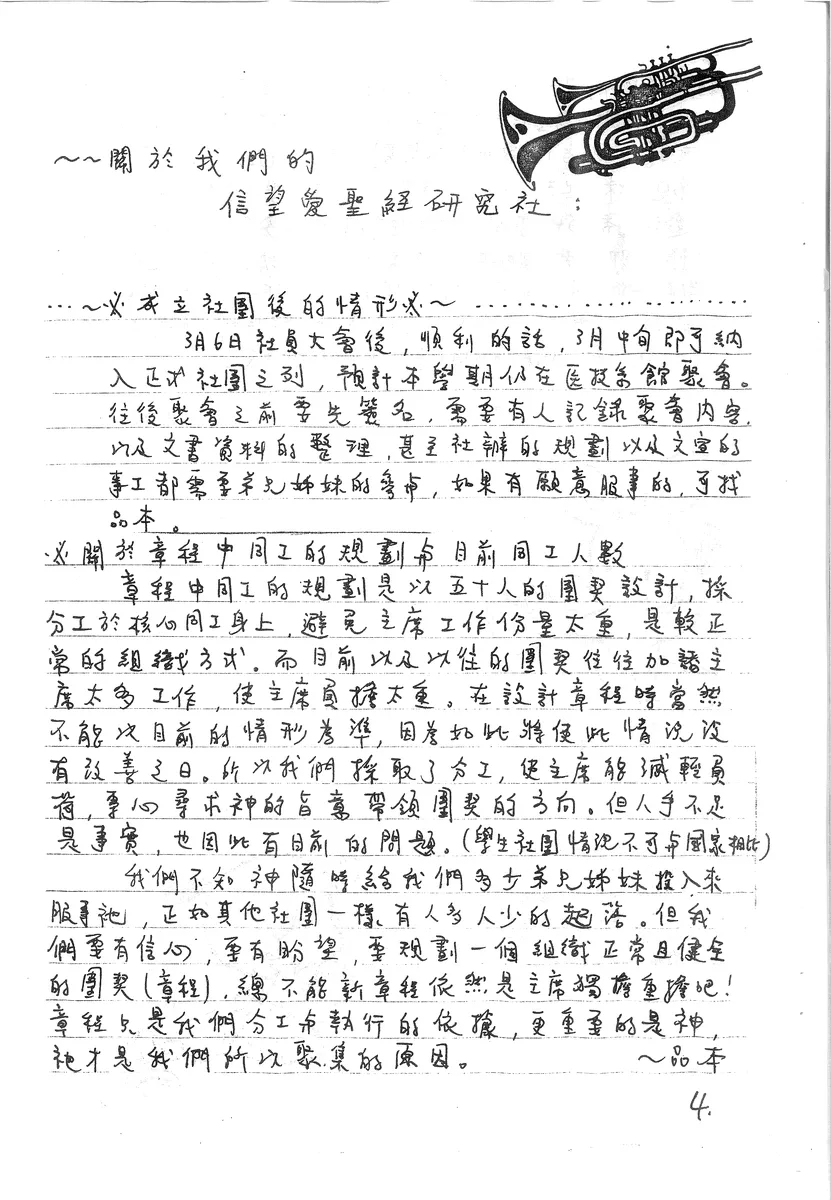 ~~關於我們的
信望愛聖經研究社：
…~必成立社團後的情形必~ ………………………
3月6日社員大會後，順利的話，3月中旬即可納
入正式社團之列，預計本學期仍在医技系館聚會。
往後聚會之前要先簽名，需要有人記錄聚會内容，
以及文書資料的整理，甚至社辦的規劃以及文宣的
事工都需要弟兄姊妹的參与，如果有願意服事的，可找
品本。
必關於章程中同工的規劃与目前同工人數
章程中同工的規劃是以五十人的團契設計，採
分工於核心同工身上，避免主席工作份量太重，是較正
常的組織方式。而目前以及以往的團契往往加諸主
席太多工作，使主席負擔太重。在設計章程時當然
不能以目前的情形為準，因為如此將使此情況沒
有改善之日。所以我們採取了分工，使主席能減輕負
荷，專心尋求神的旨意帶領團契的方向。但人手不足
是事實，也因此有目前的問題。(學生社團情況不可与國家相比)
我們不知神隨時給我們多少弟兄姊妹投入來
服事祂，正如其他社團一樣，有人多人少的起落。但我
們要有信心，要有盼望，要規劃一個組織正常且健全
的團契(章程)，總不能新章程依然是主席獨擔重擔吧！
章程只是我們分工与執行的依據，更重要的是神，
祂才是我們所以聚集的原因。 ~品本
4.